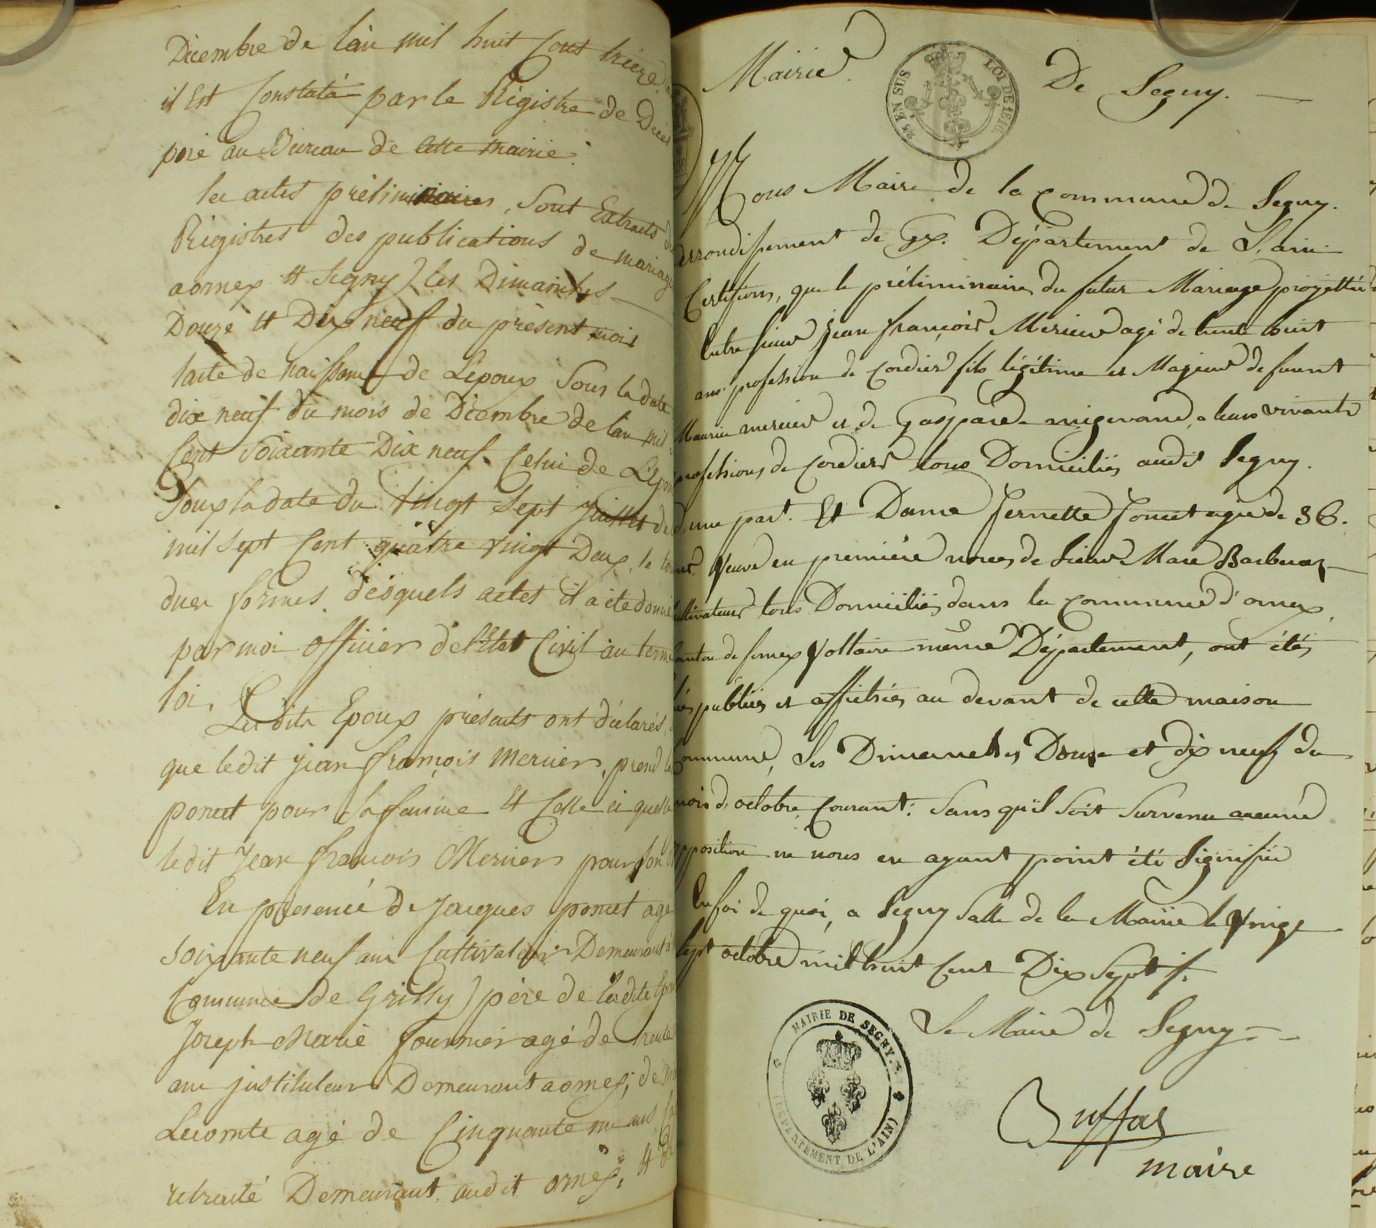 Décembre de l'an mil huit Cent treize
il Est Constaté par le Régistre de Décès
posé au Bureau de Cette Mairie.
les actes préliminaires, Sont Extraits d
Régistres des publications de mariage
a ornex Et Segny les Dimanches
Douze Et Dix neuf du présent mois
l'acte de naissance de L'époux Sous la date
dix neuf du mois de Décembre de l'an mil
Cent Soixante Dix neuf. Celui de L'épou
Sous la date du Vingt Sept Juillet de
mil sept Cent quatre vingt Deux, le to
dues formes. desquels actes il a été donné
par moi officier de l'Etat Civil au terme
loi.
Les dits Epoux présents ont déclarés
que ledit Jean françois Mercier, prend
poncet pour Sa famme Et Celle ci que
ledit Jean françois Mercier pour son
En présence de Jacques poncet agé
soixante neuf ans Cultivateur Demeurant
Commune de Grilly père de ladite Epou
Joseph Marie fournier agé de trente
ans instituteur Demeurant a ornex, de
Lecomte agé de Cinquante un ans
retraité Demeurant audit ornex, Et
Mairie De Segny.
EN SUS LOI DE 1816
Nous Maire de la Commune de Segny.
arrondissement de Gex. Département de L'ain
Certifions, que le préliminaires du futur Mariage projetté
Entre sieur Jean françois Mercier agé de trente huit
ans profession de Cordier fils légitime et Majeur de feu
Maurice mercier et de Gaspare migerand, a leurs vivants
professions de Cordiers tous Domiciliés audit Segny.
d'une part. Et Dame Jernette Poncet agée de 36.
ans Veuve en première noces de Sieur Marc Barberat
cultivateurs tous Domiciliés dans la Commune d'ornex
canton de fernex Voltaire même Département, ont étés
lus publiés et affichés au devant de cette maison
commune, Les Dimanches Douze et dix neuf du
mois d'octobre Courant: Sans qu'il Soit Survenu aucune
opposition ne nous en ayant point été Signifiée
En foi de quoi, a Segny Salle de la Mairie le Vingt
sept octobre mil huit Cent Dix Sept
Le Maire de Segny
MAIRIE DE SEGNY.
(DÉPARTEMENT DE L'AIN)
Buffas
maire